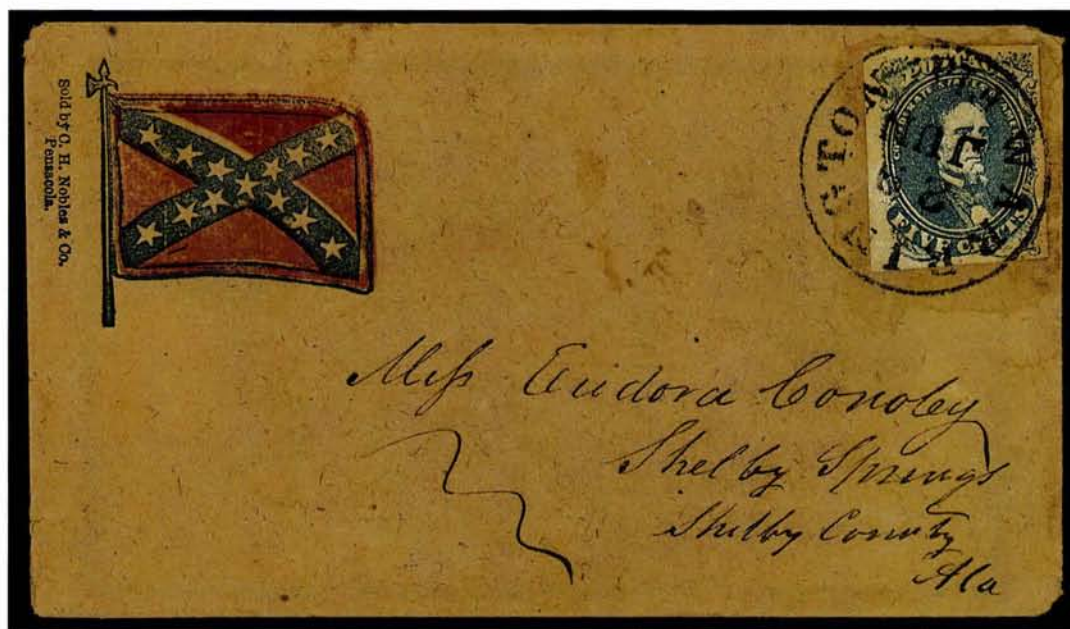 Sold by C. H. Nobles & Co.
Pensacola.
FIVE CENTS
Miss Eudora Conoley
Shelby Springs
Shelby County
Ala